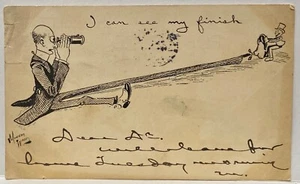 I can see my finish
Dear Dr.
will leave for
home Tuesday morning